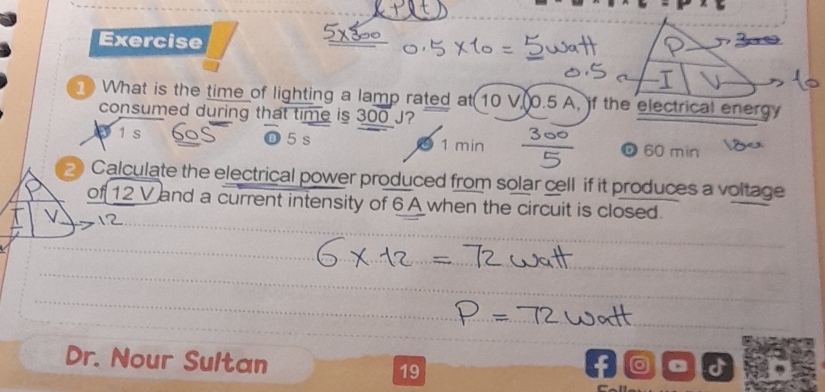 P(t)
Exercise !
5x300
0.5 x 10 = 5 watt
P
I V
0.5
10
1 What is the time of lighting a lamp rated at 10 V, 0.5 A, if the electrical energy
consumed during that time is 300 J?
1 s
60s
B 5 s
1 min
300
5
D 60 min
2 Calculate the electrical power produced from solar cell if it produces a voltage
of 12 V and a current intensity of 6 A when the circuit is closed.
P
I V
12
6 x 12 = 72 watt
P = 72 watt
Dr. Nour Sultan
19